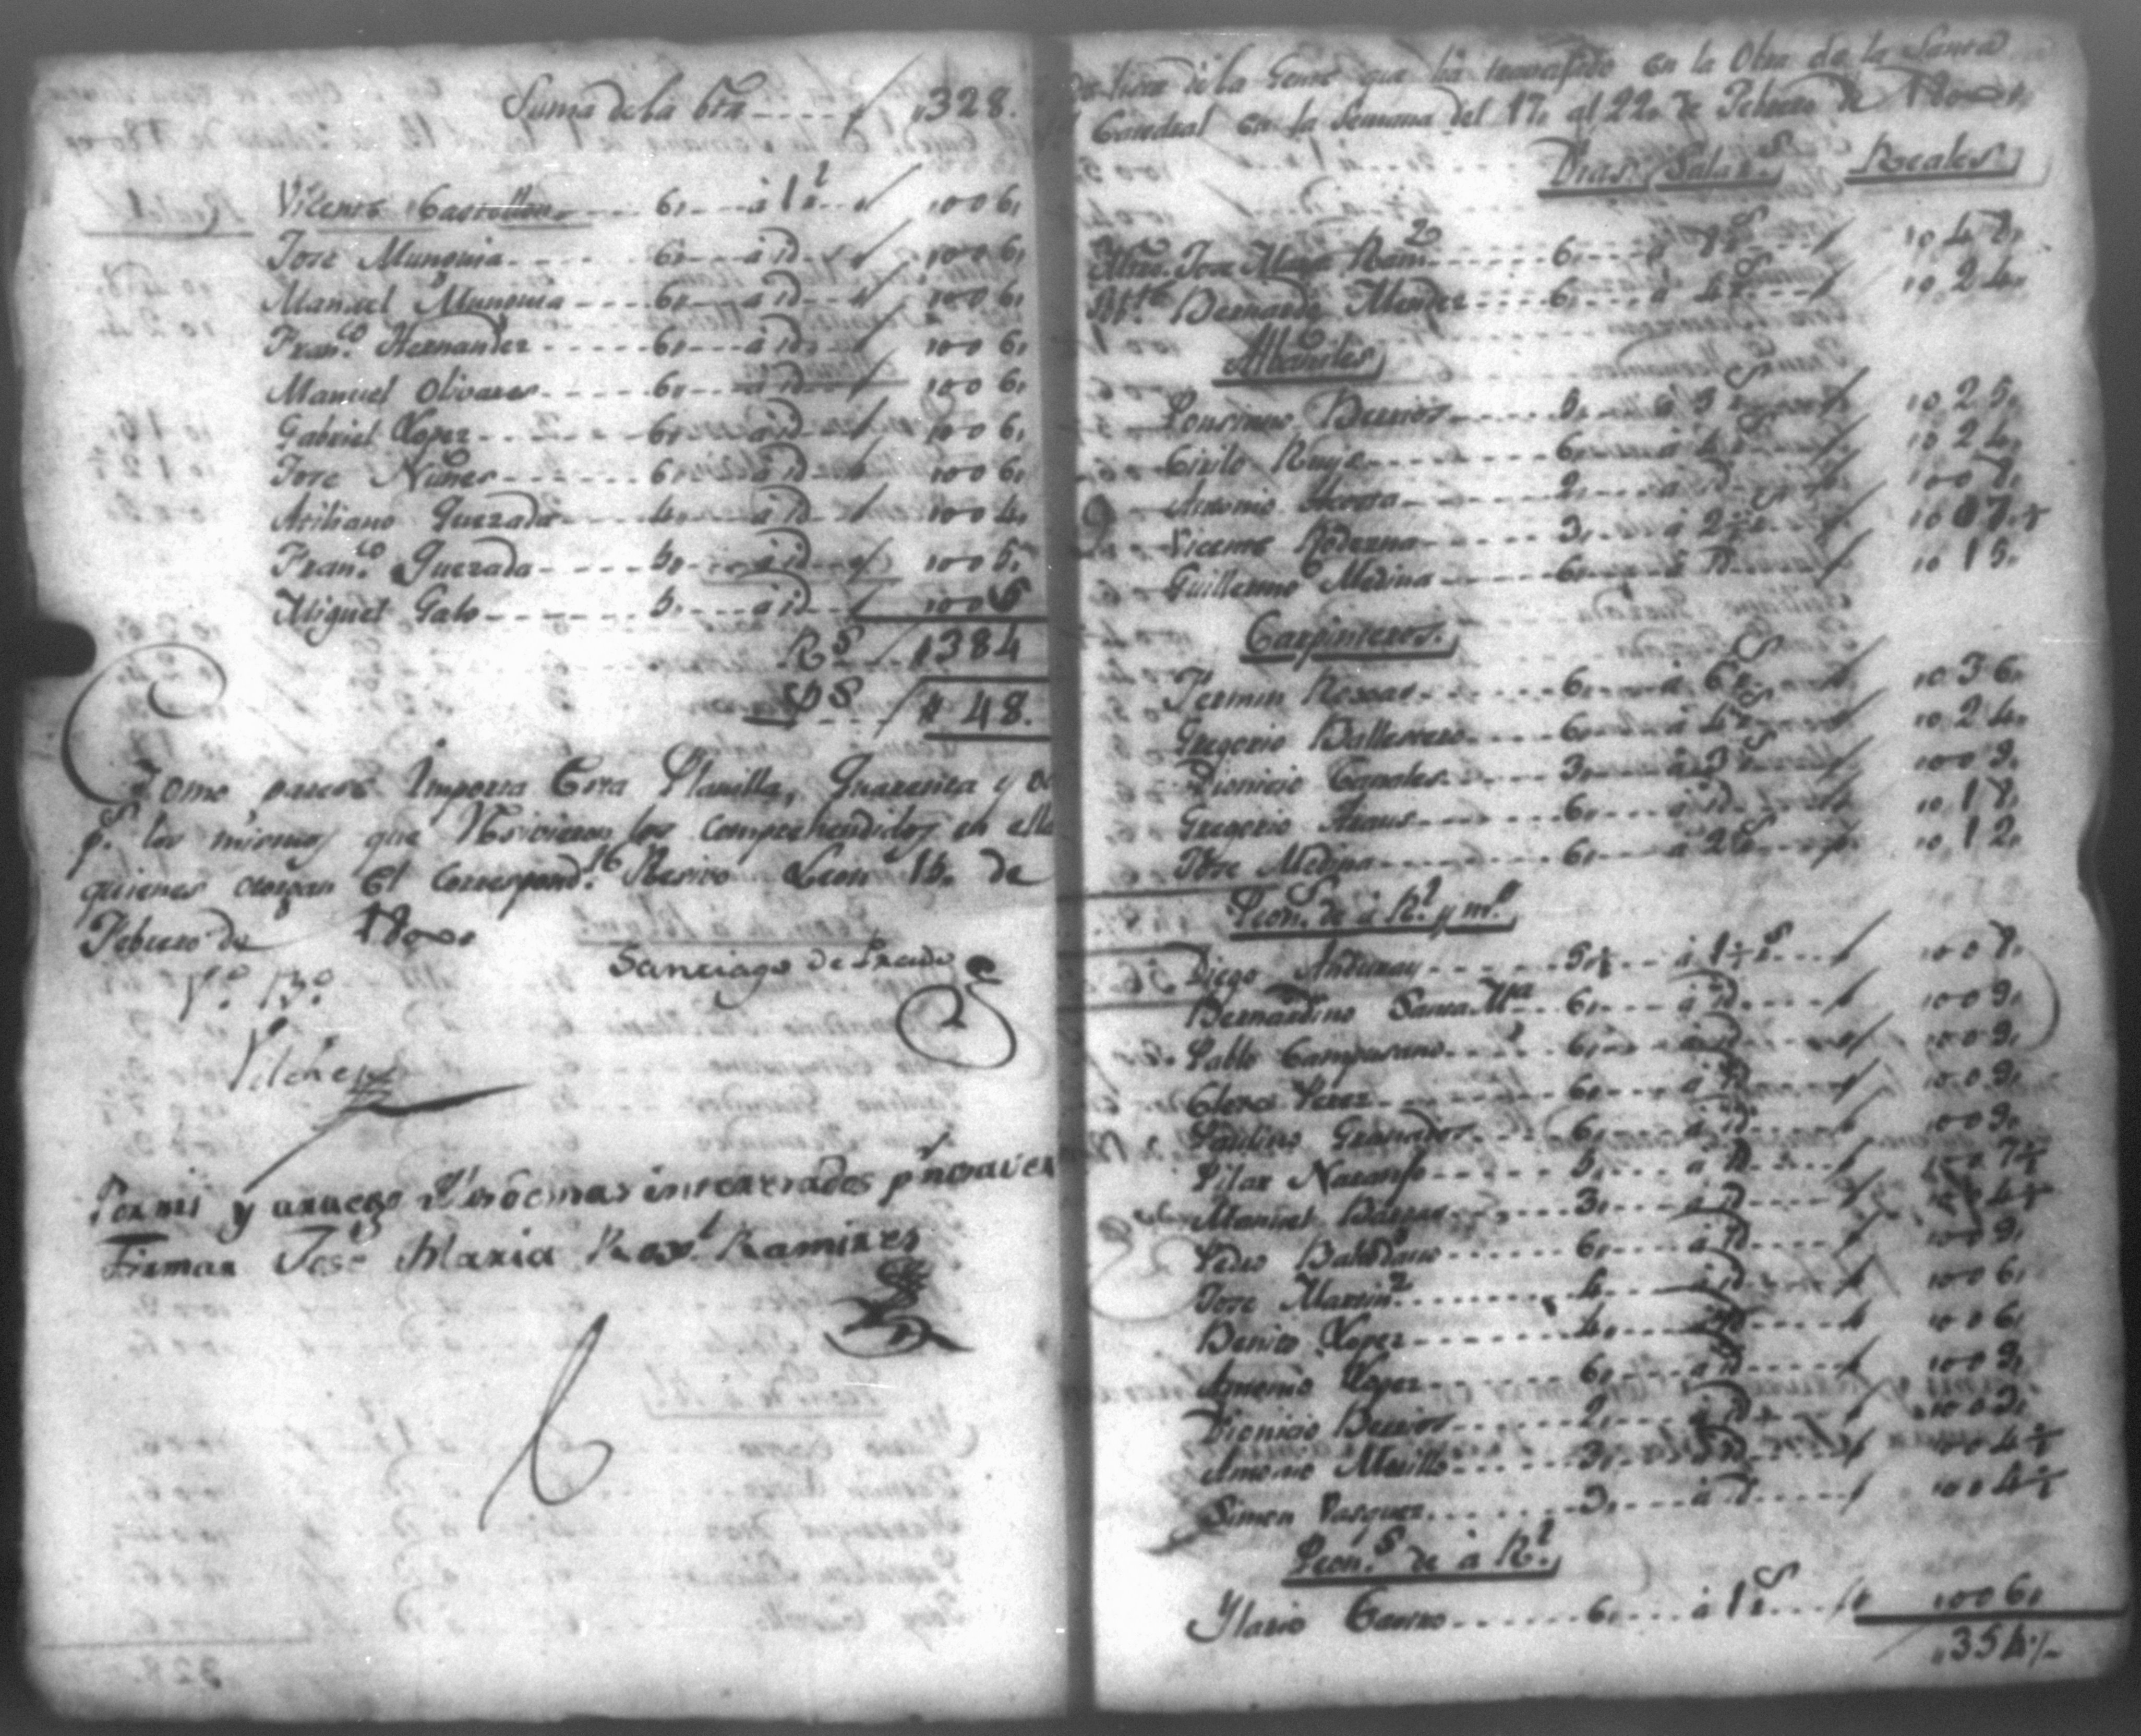 Suma de la bta ---- 1328.
Vicente Castellon ---- 6, --- à 1 l 1006,
Jose Munguia ---- 6, --- à id 1006,
Manuel Munguia --- 6, --- à id 1006,
Fran.co Hernandez ---- 6, --- à id 1006,
Manuel Olivares ---- 6, --- à id 1006,
Gabriel Lopez ---- 6, --- à id 1006,
Jose Nuñes ---- 6, --- à id 1006,
Quezada --- 4, --- à id 1004,
Fran.co Quezada ---- 5, --- à id 1005,
Miguel Galo ---- 5, --- à id 1005
R.s 1384
P.s 48.
Como parece Importa Esta Planilla, Quarenta y
p.s los mismos que Resivieron los comprehendidos en ella
quienes otorgan El Correspond.te Resivo Leon 15. de
Febrero de
V.o B.o
Santiago de
Vilches
Por mi y aruego de los demas interezados p.r no saver
firmar José Maria Rox.l Ramires
de la Gente que ha travajado en la Obra de la Santa
Catedral en la Semana del 17, al 22, de Febrero de
Dias, Salar.s Reales
Mtro. Jose Maria Ram.z 6, à 8 r.s 1048,
Bernardo Mendez 6, à 4 r.s 1024,
Albañiles
Berrios 5, à 5 r.s 1025,
Cirilo 6, à 4 r.s 1024,
Antonio Acosta 2, à id 1008,
Vicente Ledezma 3, à 2½ r.s 1007,½
Guillermo Medina 6, à id 1015,
Carpinteros.
Fermin 6, à 6 r.s 1036,
Gregorio Ballestero 6, à 4 r.s 1024,
Dionicio Canales 3, à 3 r.s 1009,
Gregorio Araus 6, à id 1018,
Jose Medina 6, à 2 r.s 1012,
Peon.s de à R.l y m.o
Diego 5½ à 1½ r.s 1008,
Bernardino Santa M.a 6, à id 1009,
Pablo Campusano 6, à id 1009,
Perez 6, à id 1009,
Paulino Granados 6, à id 1009,
Pilar Naranjo 5, à id 7½
Manuel 3, à id 4½
Pedro Baltodano 6, à id 1009,
Jose Martin.z 4, à id 1006,
Benito Lopez 4, à id 1006,
Antonio Lopez 6, à id 1009,
Dionicio Berrios 2, à id 1003,
Antonio Murillo 3, à id 1004½
Simon Vasquez 3, à id 1004½
Peon.s de à R.l
Ylario Castro 6, à 1 r.s 1006,
1354½